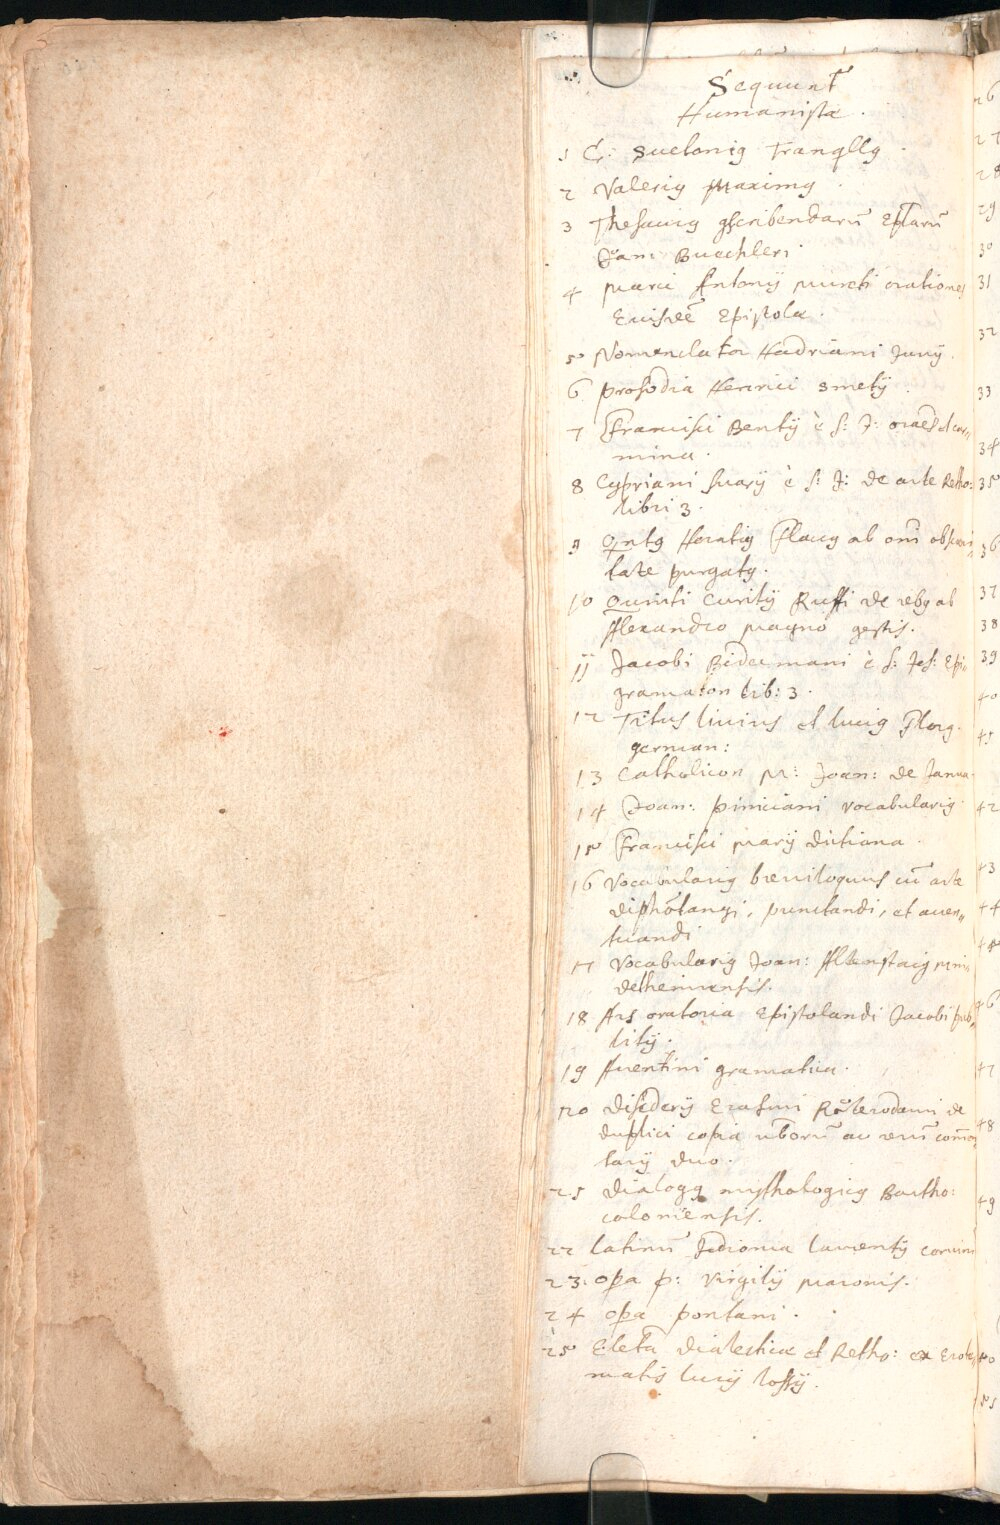 Sequunt̃
Humanistæ.
1 C: Suetonig Tranqllg.
2 Valerig Maximg.
3 Thesaurig gscribendarũ Eplarũ
Joan: Buechleri
4 Marci Antonij Mureti orationes
Eiusdẽ Epistolæ.
5 Nomenclator Hadriani Junij.
6 prosodia Henrici Smetij.
7 Francisci Bentij è S: J: oraẽs et car„
mina.
8 Cypriani Suarij è S: J: de arte Retho:
libri 3.
9 Qntg Horatig Flaccg ab oñi obscæni„
tate purgatg.
10 Quinti Curtij Ruffi de rebg ab
Alexandro Magno gestis.
11 Jacobi Bidermani è S: Jes: Epi„
gramaton lib: 3.
12 Titus Livius et Lucig Florg.
german:
13 Catholicon M: Joan: de Janua.
14 Joan: piniciani vocabularig.
15 Francisci Marij dictiona.
16 Vocabularig breuiloquus cũ arte
diphtõtangi, punctandi, et accen„
tuandi
17 Vocabularig Joan: Altenstaig Min„
delheimensis.
18 Ars oratoria Epistolandi Jacobi pub„
litij.
19 Auentini gramatica.
20 Disiderij Erasmi Roterodami de
duplici copia verborũ ac rerũ com̃en
tarij duo.
21 Dialogg mythologicg Bartho:
coloniensis.
22 Latinũ Jdioma Laurentij Coruini
23. Opa p: Virgilij Maronis.
24 Opa pontani.
25 Eleta dialecticæ et Retho: ex Erote„
matis Lucij Lossij.
26
27
28
29
30
31
32
33
34
35
36
37
38
39
40
41
42
43
44
45
46
47
48
49
50
51